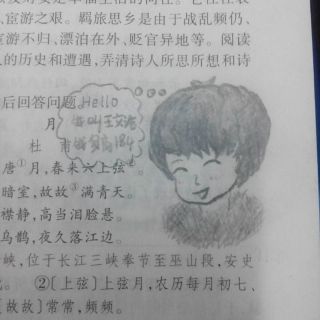 宦游之艰。羁旅思乡是由于战乱频仍、
宦游不归、漂泊在外、贬官异地等。阅读
的历史和遭遇，弄清诗人所思所想和诗
后回答问题。
Hello
月
我叫王文浩
杜
唐①月，春来六上弦②。
暗室，故故③满青天。
襟静，高当泪脸悬。
乌鹊，夜久落江边。
峡，位于长江三峡奉节至巫山段，安史
②〔上弦〕上弦月，农历每月初七、
故故〕常常，频频。